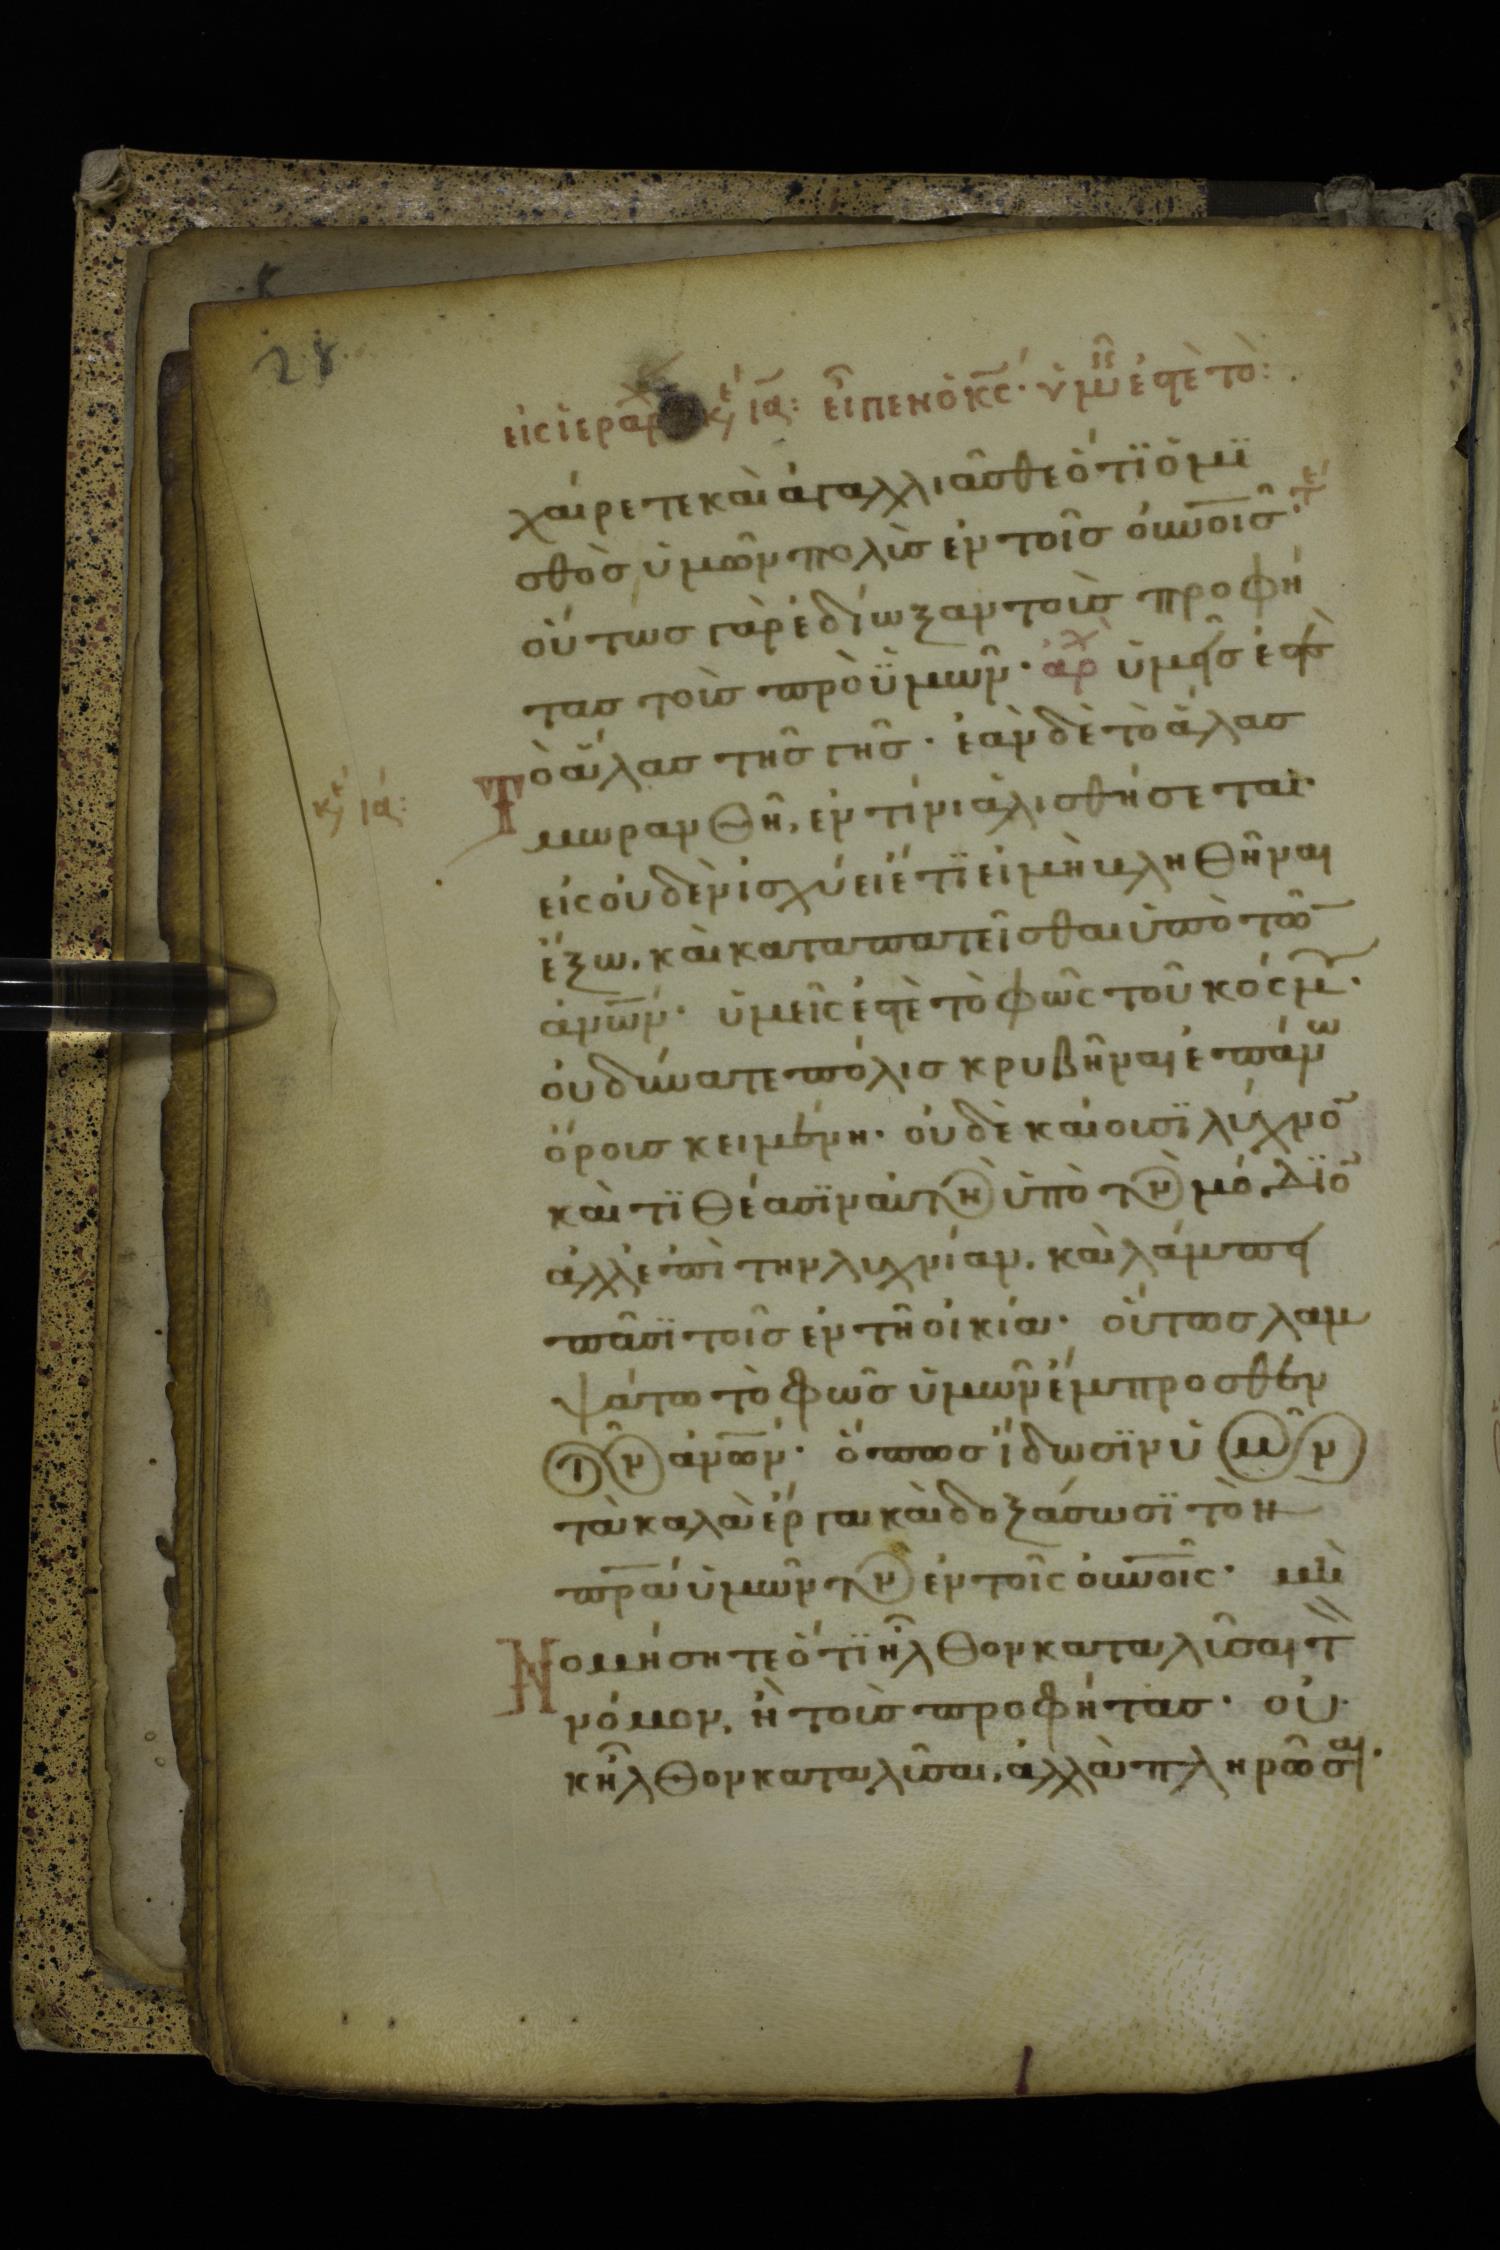 28
εἰς ἱεράρχ κε ια: εἶπεν ὁ κς· ὑμεῖς ἐστὲ τὸ:
χαίρετε καὶ ἀγαλλιᾶσθε ὅτϊ ὁ μϊ
σθὸς ὑμῶν πολὺς ἐν τοῖς οὐνοις· τε
οὕτως γὰρ ἐδίωξαν τοὺς προφή
τας τοὺς πρὸ ϋμῶν· ἀρχ ὑμεῖς ἐστὲ
Τὸ ἅλας τῆς γῆς· ἐὰν δὲ τὸ ἅλας
κε ια:
μωρανθῆ, ἐν τίνι ἁλισθήσεται·
εἰς οὐδὲν ἰσχύει ἔτϊ εἰ μὴ βληθῆναι
ἔξω, καὶ καταπατεῖσθαι ὑπὸ τῶ
ἀνων· ὑμεῖς ἐστὲ τὸ φῶς τοῦ κόσμου·
οὐ δύνατε πόλις κρυβῆναι ἐπάνω
ὄρους κειμένη· οὐδὲ καίουσϊ λύχνο
καὶ τϊθέασϊν αὐτὸν ὑπὸ τὸν μόδϊο
ἀλλ' ἐπὶ την λυχνίαν, καὶ λάμπει
πᾶσϊ τοῖς ἐν τῆ οἰκία· οὕτως λαμ
ψάτω τὸ φῶς ὑμῶν ἔμπροσθεν
τῶν ἀνων· ὅπως ἴδωσϊν ὑμῶν
τὰ καλὰ ἔργα καὶ δοξάσωσϊ τὸν
πρα ὑμῶν τὸν ἐν τοῖς οὐνοῖς· μὴ
Νομήσητε ὅτϊ ἦλθον καταλῦσαι τ
νόμον, ἢ τοὺς προφήτας· οὐ
κ ἦλθον καταλῦσαι, ἀλλὰ πληρῶσαι·